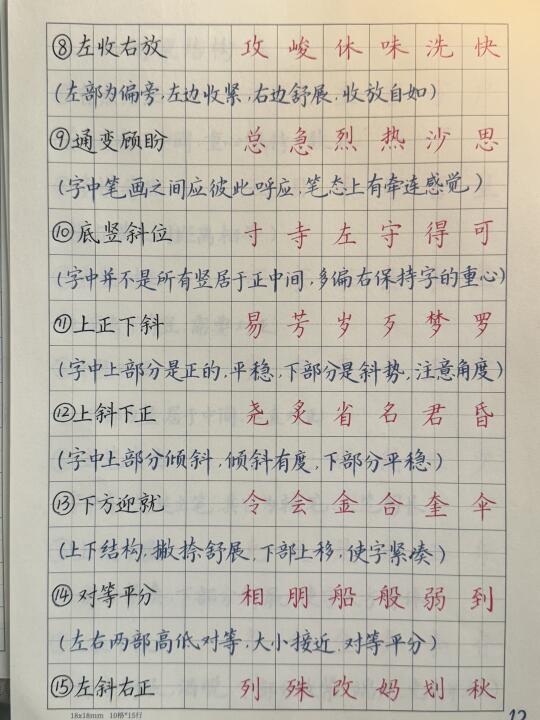 ⑧左收右放 攻 峻 休 味 洗 快
(左部为偏旁,左边收紧,右边舒展,收放自如)
⑨通变顾盼 总 急 烈 热 沙 思
(字中笔画之间应彼此呼应,笔态上有牵连感觉)
⑩底竖斜位 寸 寺 左 守 得 可
(字中并不是所有竖居于正中间,多偏右保持字的重心)
⑪上正下斜 易 芳 岁 歹 梦 罗
(字中上部分是正的,平稳,下部分是斜势,注意角度)
⑫上斜下正 尧 炙 省 名 君 昏
(字中上部分倾斜,倾斜有度,下部分平稳)
⑬下方迎就 令 会 金 合 奎 伞
(上下结构,撇捺舒展,下部上移,使字紧凑)
⑭对等平分 相 朋 船 般 弱 到
(左右两部高低对等,大小接近,对等平分)
⑮左斜右正 列 殊 改 妈 划 秋
18x18mm 10格*15行